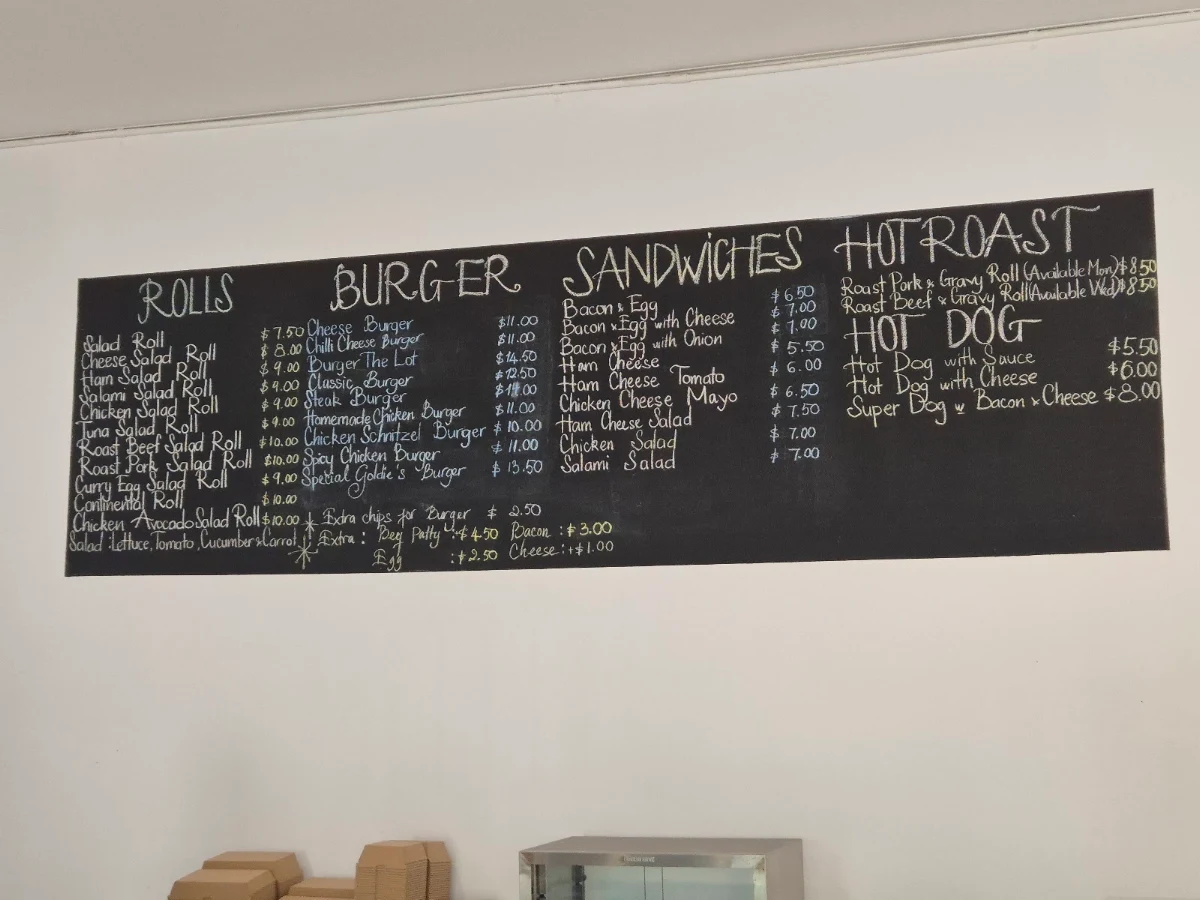 ROLLS
Salad Roll $7.50
Cheese Salad Roll $8.00
Ham Salad Roll $9.00
Salami Salad Roll $9.00
Chicken Salad Roll $9.00
Tuna Salad Roll $9.00
Roast Beef Salad Roll $10.00
Roast Pork Salad Roll $10.00
Curry Egg Salad Roll $9.00
Continental Roll $10.00
Chicken Avocado Salad Roll $10.00
Salad : Lettuce, Tomato, Cucumber & Carrot
BURGER
Cheese Burger $11.00
Chilli Cheese Burger $11.00
Burger The Lot $14.50
Classic Burger $12.50
Steak Burger
Homemade Chicken Burger $11.00
Chicken Schnitzel Burger $10.00
Spicy Chicken Burger $11.00
Special Goldie's Burger $13.50
Extra chips for Burger $2.50
Extra : Beef Patty :+$4.50 Bacon :+$3.00
Egg :+$2.50 Cheese :+$1.00
SANDWICHES
Bacon & Egg $6.50
Bacon & Egg with Cheese $7.00
Bacon & Egg with Onion $7.00
Ham Cheese $5.50
Ham Cheese Tomato $6.00
Chicken Cheese Mayo $6.50
Ham Cheese Salad $7.50
Chicken Salad $7.00
Salami Salad $7.00
HOT ROAST
Roast Pork & Gravy Roll (Available Mon) $8.50
Roast Beef & Gravy Roll (Available Wed) $8.50
HOT DOG
Hot Dog with Sauce $5.50
Hot Dog with Cheese $6.00
Super Dog w Bacon & Cheese $8.00